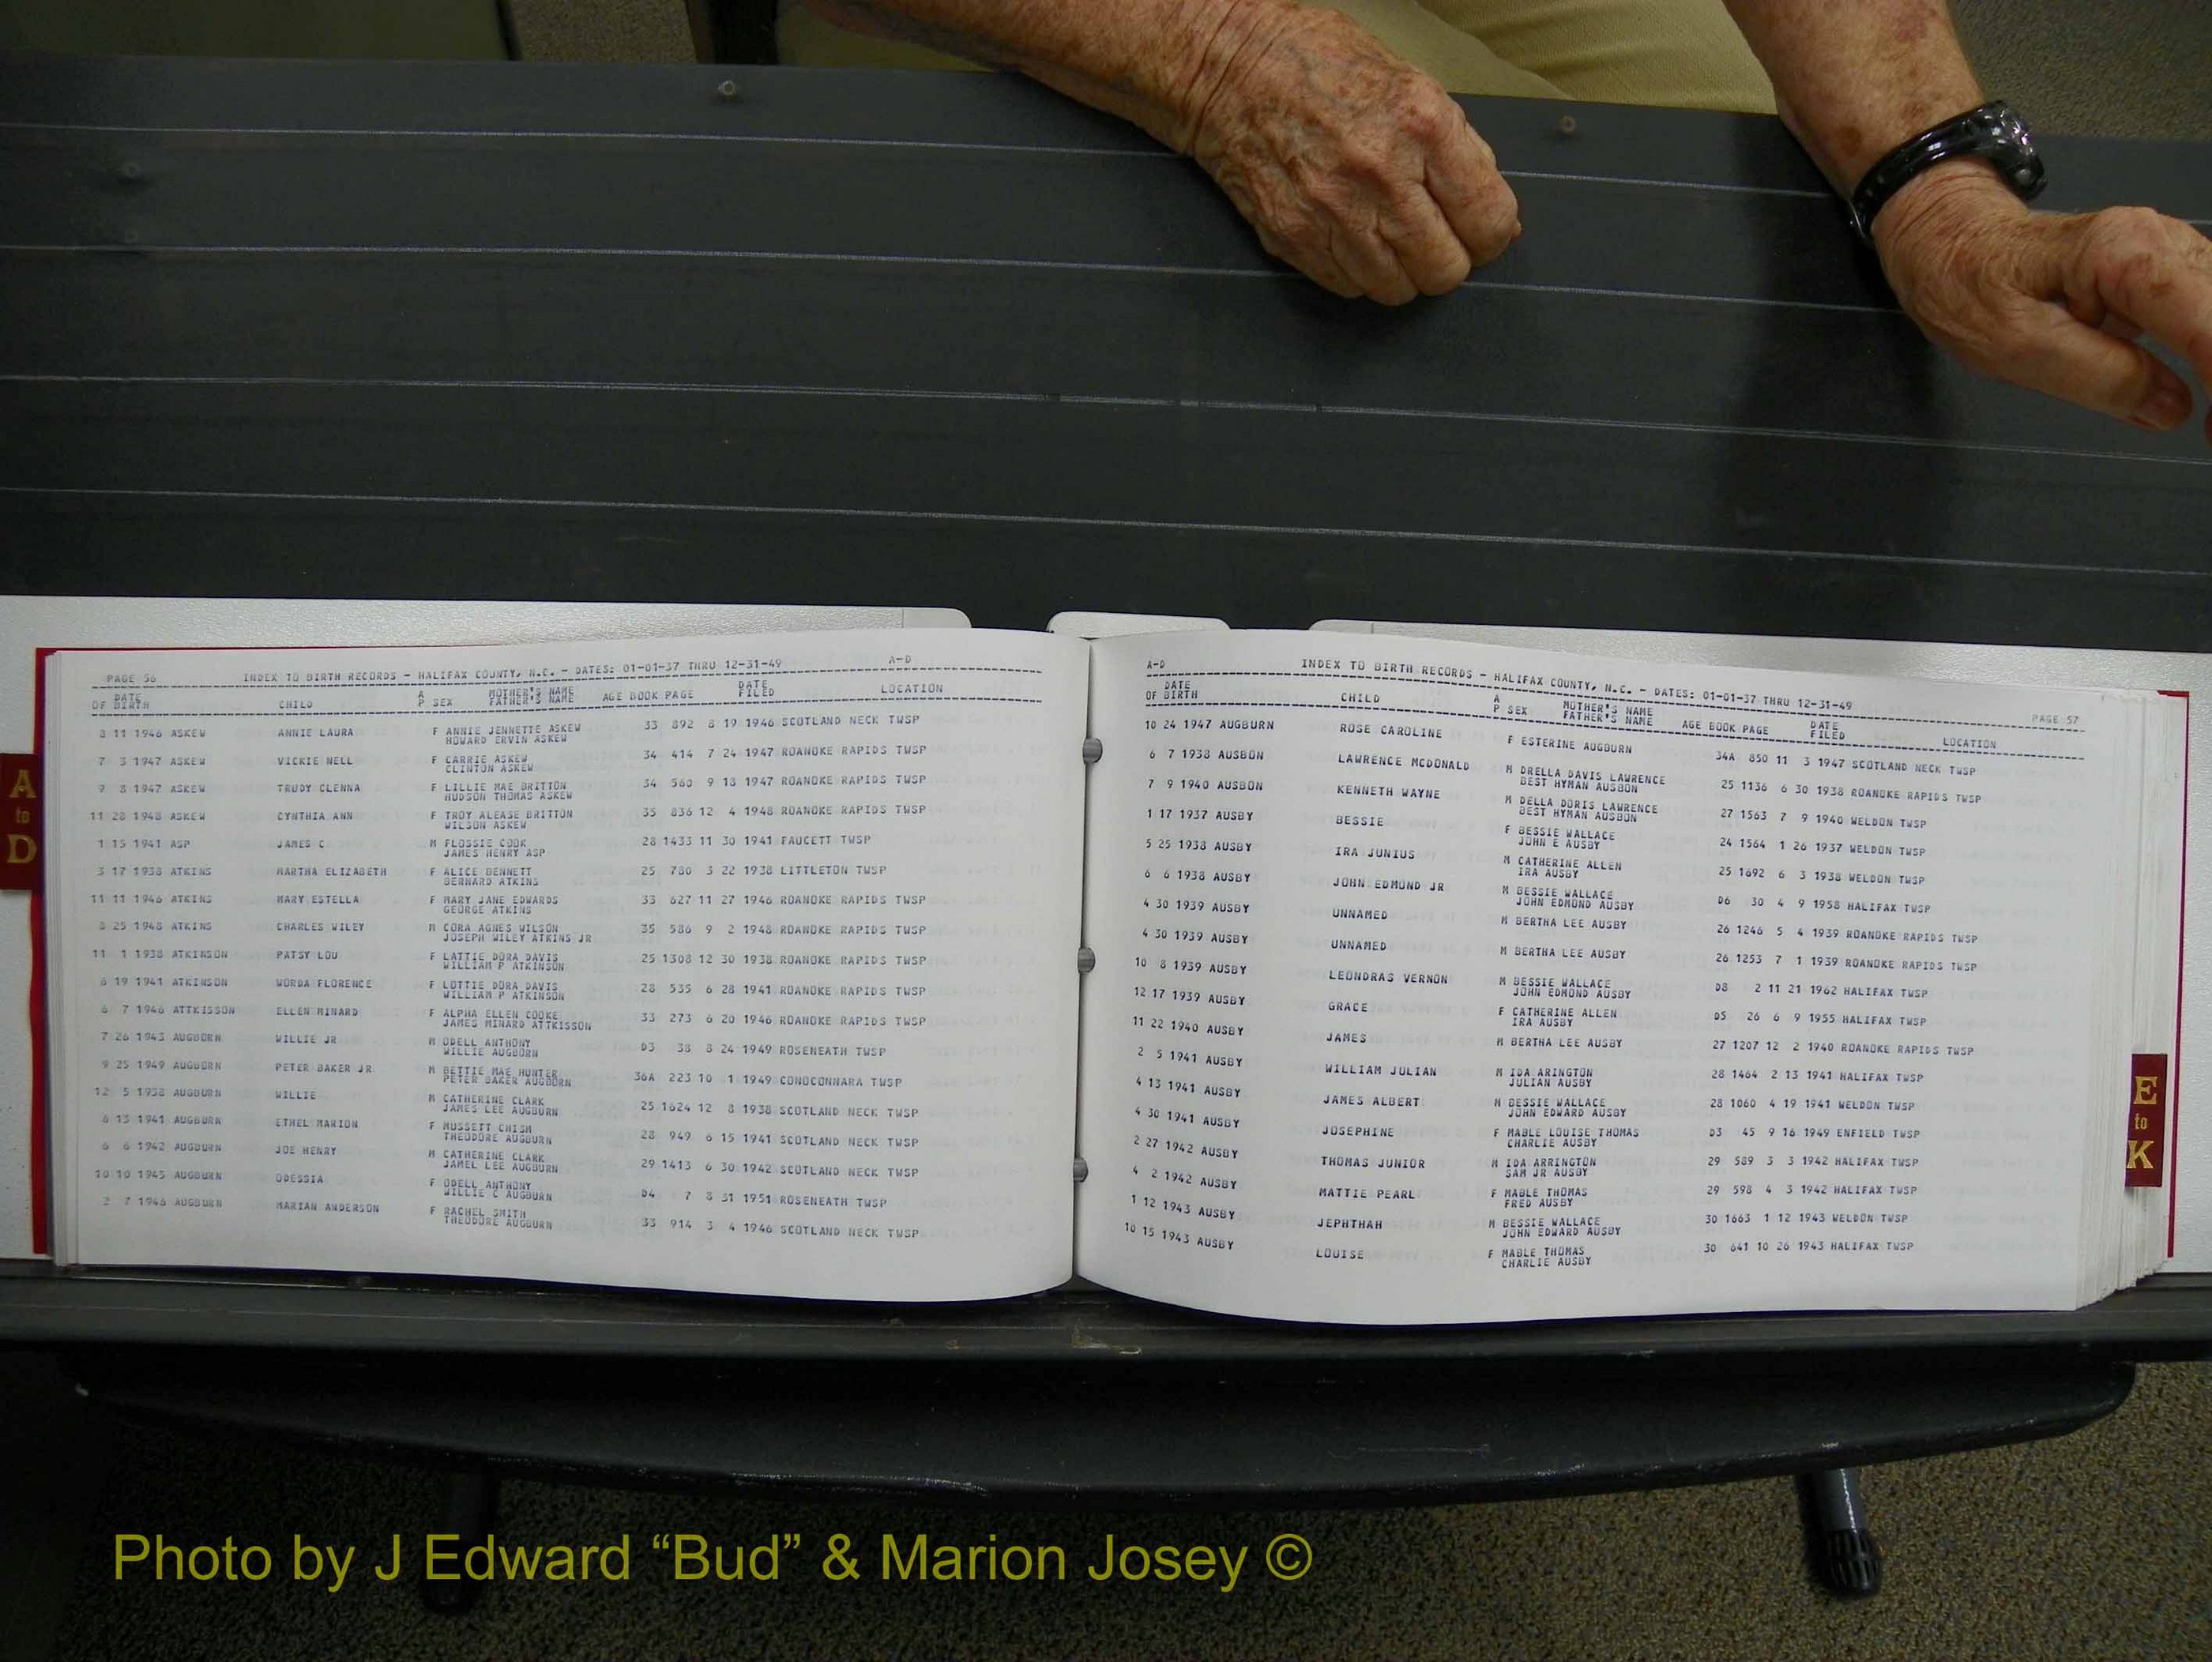 A
to
D
PAGE 56 INDEX TO BIRTH RECORDS - HALIFAX COUNTY, N.C. - DATES: 01-01-37 THRU 12-31-49 A-D
DATE A MOTHER'S NAME DATE
OF BIRTH CHILD P SEX FATHER'S NAME AGE BOOK PAGE FILED LOCATION
8 11 1946 ASKEW ANNIE LAURA F ANNIE JENNETTE ASKEW 33 892 8 19 1946 SCOTLAND NECK TWSP
HOWARD ERVIN ASKEW
7 3 1947 ASKEW VICKIE NELL F CARRIE ASKEW 34 414 7 24 1947 ROANOKE RAPIDS TWSP
CLINTON ASKEW
9 8 1947 ASKEW TRUDY CLENNA F LILLIE MAE BRITTON 34 560 9 18 1947 ROANOKE RAPIDS TWSP
HUDSON THOMAS ASKEW
11 28 1948 ASKEW CYNTHIA ANN F TROY ALEASE BRITTON 35 836 12 4 1948 ROANOKE RAPIDS TWSP
WILSON ASKEW
1 15 1941 ASP JAMES C M FLOSSIE COOK 28 1433 11 30 1941 FAUCETT TWSP
JAMES HENRY ASP
3 17 1938 ATKINS MARTHA ELIZABETH F ALICE BENNETT 25 780 3 22 1938 LITTLETON TWSP
BERNARD ATKINS
11 11 1946 ATKINS MARY ESTELLA F MARY JANE EDWARDS 33 627 11 27 1946 ROANOKE RAPIDS TWSP
GEORGE ATKINS
8 25 1948 ATKINS CHARLES WILEY M CORA AGNES WILSON 35 586 9 2 1948 ROANOKE RAPIDS TWSP
JOSEPH WILEY ATKINS JR
11 1 1938 ATKINSON PATSY LOU F LATTIE DORA DAVIS 25 1308 12 30 1938 ROANOKE RAPIDS TWSP
WILLIAM P ATKINSON
6 19 1941 ATKINSON WORDA FLORENCE F LOTTIE DORA DAVIS 28 535 6 28 1941 ROANOKE RAPIDS TWSP
WILLIAM P ATKINSON
6 7 1946 ATTKISSON ELLEN MINARD F ALPHA ELLEN COOKE 33 273 6 20 1946 ROANOKE RAPIDS TWSP
JAMES MINARD ATTKISSON
7 26 1943 AUGBURN WILLIE JR M ODELL ANTHONY D3 38 8 24 1949 ROSENEATH TWSP
WILLIE AUGBURN
9 25 1949 AUGBURN PETER BAKER JR M BETTIE MAE HUNTER 36A 223 10 1 1949 CONOCONNARA TWSP
PETER BAKER AUGBURN
12 5 1938 AUGBURN WILLIE M CATHERINE CLARK 25 1624 12 8 1938 SCOTLAND NECK TWSP
JAMES LEE AUGBURN
6 13 1941 AUGBURN ETHEL MARION F MUSSETT CHISM 28 949 6 15 1941 SCOTLAND NECK TWSP
THEODORE AUGBURN
6 6 1942 AUGBURN JOE HENRY M CATHERINE CLARK 29 1413 6 30 1942 SCOTLAND NECK TWSP
JAMEL LEE AUGBURN
10 10 1945 AUGBURN ODESSIA F ODELL ANTHONY D4 7 8 31 1951 ROSENEATH TWSP
WILLIE C AUGBURN
2 7 1946 AUGBURN MARIAN ANDERSON F RACHEL SMITH 33 914 3 4 1946 SCOTLAND NECK TWSP
THEODORE AUGBURN
A-D INDEX TO BIRTH RECORDS - HALIFAX COUNTY, N.C. - DATES: 01-01-37 THRU 12-31-49 PAGE 57
DATE A MOTHER'S NAME DATE
OF BIRTH CHILD P SEX FATHER'S NAME AGE BOOK PAGE FILED LOCATION
10 24 1947 AUGBURN ROSE CAROLINE F ESTERINE AUGBURN 34A 850 11 3 1947 SCOTLAND NECK TWSP
6 7 1938 AUSBON LAWRENCE MCDONALD M DRELLA DAVIS LAWRENCE 25 1136 6 30 1938 ROANOKE RAPIDS TWSP
BEST HYMAN AUSBON
7 9 1940 AUSBON KENNETH WAYNE M DELLA DORIS LAWRENCE 27 1563 7 9 1940 WELDON TWSP
BEST HYMAN AUSBON
1 17 1937 AUSBY BESSIE F BESSIE WALLACE 24 1564 1 26 1937 WELDON TWSP
JOHN E AUSBY
5 25 1938 AUSBY IRA JUNIUS M CATHERINE ALLEN 25 1692 6 3 1938 WELDON TWSP
IRA AUSBY
6 6 1938 AUSBY JOHN EDMOND JR M BESSIE WALLACE D6 30 4 9 1958 HALIFAX TWSP
JOHN EDMOND AUSBY
4 30 1939 AUSBY UNNAMED M BERTHA LEE AUSBY 26 1246 5 4 1939 ROANOKE RAPIDS TWSP
4 30 1939 AUSBY UNNAMED M BERTHA LEE AUSBY 26 1253 7 1 1939 ROANOKE RAPIDS TWSP
10 8 1939 AUSBY LEONDRAS VERNON M BESSIE WALLACE D8 2 11 21 1962 HALIFAX TWSP
JOHN EDMOND AUSBY
12 17 1939 AUSBY GRACE F CATHERINE ALLEN D5 26 6 9 1955 HALIFAX TWSP
IRA AUSBY
11 22 1940 AUSBY JAMES M BERTHA LEE AUSBY 27 1207 12 2 1940 ROANOKE RAPIDS TWSP
2 5 1941 AUSBY WILLIAM JULIAN M IDA ARINGTON 28 1464 2 13 1941 HALIFAX TWSP
JULIAN AUSBY
4 13 1941 AUSBY JAMES ALBERT M BESSIE WALLACE 28 1060 4 19 1941 WELDON TWSP
JOHN EDWARD AUSBY
4 30 1941 AUSBY JOSEPHINE F MABLE LOUISE THOMAS D3 45 9 16 1949 ENFIELD TWSP
CHARLIE AUSBY
2 27 1942 AUSBY THOMAS JUNIOR M IDA ARRINGTON 29 589 3 3 1942 HALIFAX TWSP
SAM JR AUSBY
4 2 1942 AUSBY MATTIE PEARL F MABLE THOMAS 29 598 4 3 1942 HALIFAX TWSP
FRED AUSBY
1 12 1943 AUSBY JEPHTHAH M BESSIE WALLACE 30 1663 1 12 1943 WELDON TWSP
JOHN EDWARD AUSBY
10 15 1943 AUSBY LOUISE F MABLE THOMAS 30 641 10 26 1943 HALIFAX TWSP
CHARLIE AUSBY
E
to
K
Photo by J Edward “Bud” & Marion Josey ©